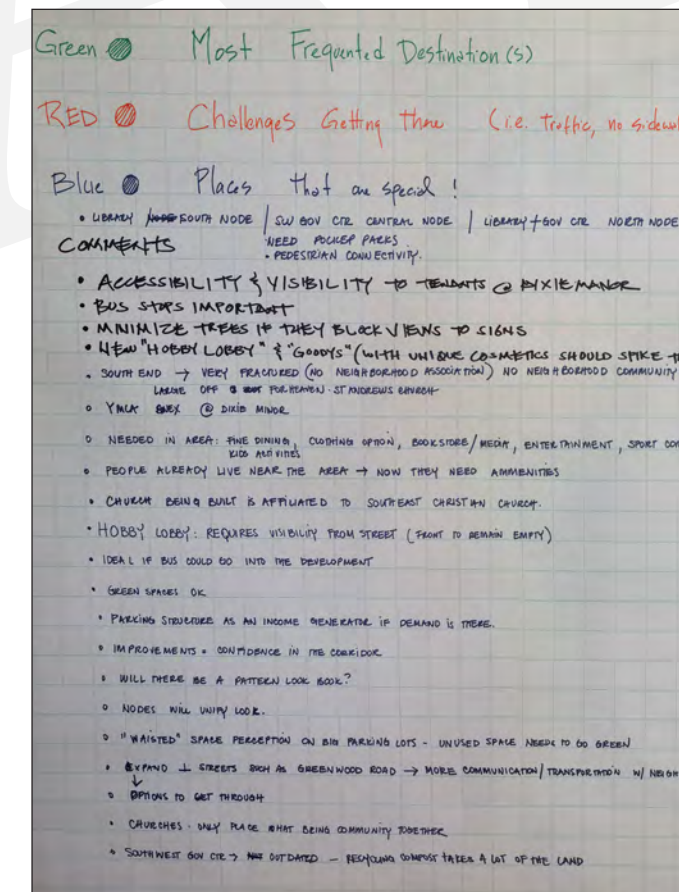 Green Most Frequented Destination(s)
RED Challenges Getting There (i.e. traffic, no sidewal
Blue Places that are special!
• LIBRARY SOUTH NODE | SW GOV CTR CENTRAL NODE | LIBRARY + GOV CTR NORTH NODE
NEED POCKET PARKS
COMMENTS • PEDESTRIAN CONNECTIVITY.
• ACCESSIBILITY & VISIBILITY TO TENANTS @ DIXIE MANOR
• BUS STOPS IMPORTANT
• MINIMIZE TREES IF THEY BLOCK VIEWS TO SIGNS
• NEW "HOBBY LOBBY" & "GOODYS" (WITH UNIQUE COSMETICS SHOULD SPIKE
• SOUTH END → VERY FRACTURED (NO NEIGHBORHOOD ASSOCIATION) NO NEIGHBORHOOD COMMUNITY
LARGE OFF FOR HEAVEN - ST ANDREWS CHURCH
• YMCA @ DIXIE MINOR
• NEEDED IN AREA: FINE DINING, CLOTHING OPTION, BOOKSTORE/MEDIA, ENTERTAINMENT, SPORT COM
KIDS ACTIVITIES
• PEOPLE ALREADY LIVE NEAR THE AREA → NOW THEY NEED AMMENITIES
• CHURCH BEING BUILT IS AFFILIATED TO SOUTHEAST CHRISTIAN CHURCH.
• HOBBY LOBBY: REQUIRES VISIBILITY FROM STREET (FRONT TO REMAIN EMPTY)
• IDEAL IF BUS COULD GO INTO THE DEVELOPMENT
• GREEN SPACES OK
• PARKING STRUCTURE AS AN INCOME GENERATOR IF DEMAND IS THERE.
• IMPROVEMENTS = CONFIDENCE IN THE CORRIDOR
• WILL THERE BE A PATTERN LOOK BOOK?
• NODES WILL UNIFY LOOK.
• "WAISTED" SPACE PERCEPTION ON BIG PARKING LOTS - UNUSED SPACE NEEDS TO GO GREEN
• EXPAND ⊥ STREETS SUCH AS GREENWOOD ROAD → MORE COMMUNICATION/TRANSPORTATION W/ NEIGH
↓
• OPTIONS TO GET THROUGH
• CHURCHES - ONLY PLACE WHAT BEING COMMUNITY TOGETHER
• SOUTHWEST GOV CTR → OUTDATED - RECYCLING COMPOST TAKES A LOT OF THE LAND